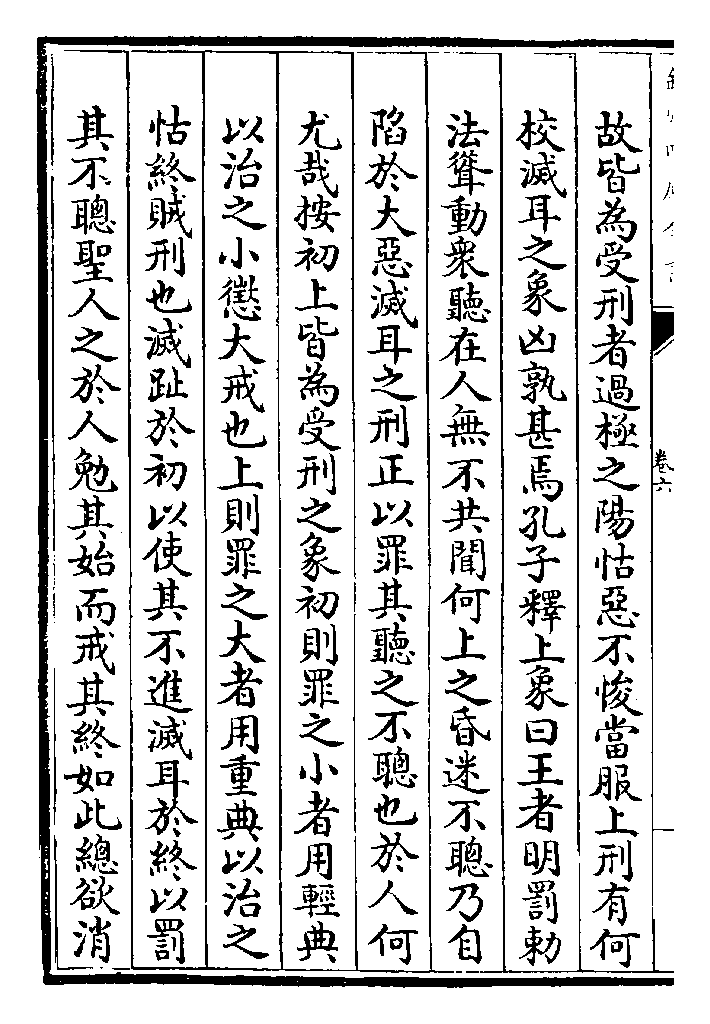 故皆為受刑者過極之陽怙惡不悛當服上刑有何
校滅耳之象凶孰甚焉孔子釋上象曰王者明罰勅
法聳動衆聽在人無不共聞何上之昏迷不聰乃自
陷於大惡滅耳之刑正以罪其聽之不聰也於人何
尤哉按初上皆為受刑之象初則罪之小者用輕典
以治之小懲大戒也上則罪之大者用重典以治之
怙終賊刑也滅趾於初以使其不進滅耳於終以罰
其不聰聖人之於人勉其始而戒其終如此總欲消
卷六